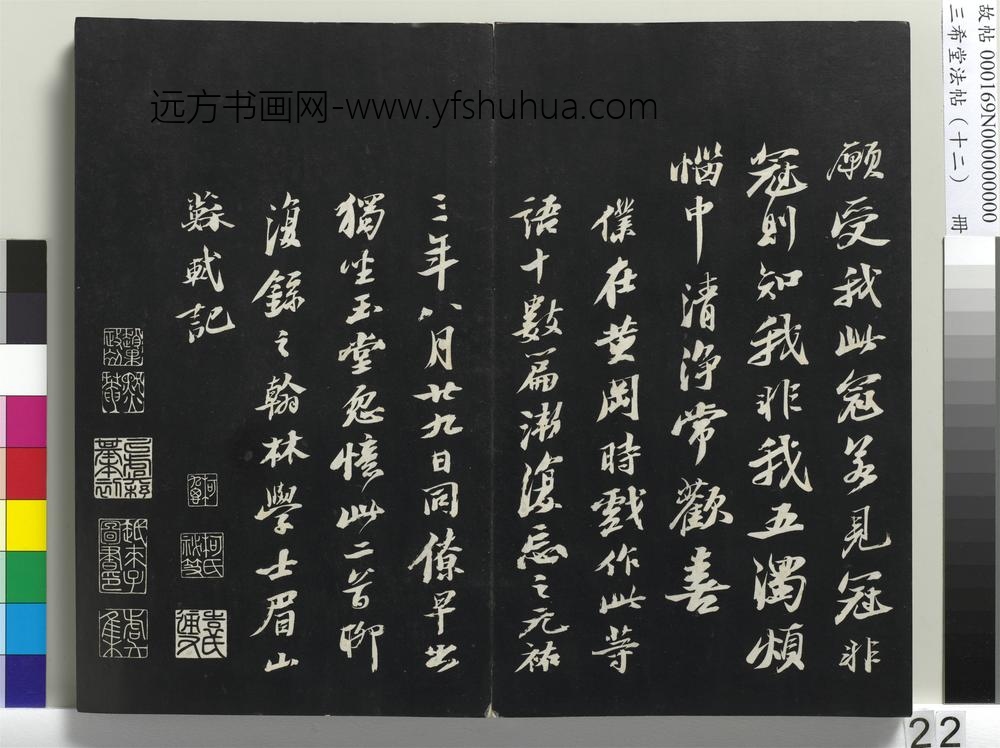 远方书画网-www.yfshuhua.com
故帖 000169N000000000
三希堂法帖（十二） 册
願受我此冠若見冠非
冠則知我非我五濁煩
惱中清浄常歡喜
僕在黄岡時戲作此等
語十數篇漸復忘之元祐
三年八月廿九日同僚早出
獨坐玉堂忽憶此二首聊
復録之翰林學士眉山
蘇軾記
柯氏
袁氏
22